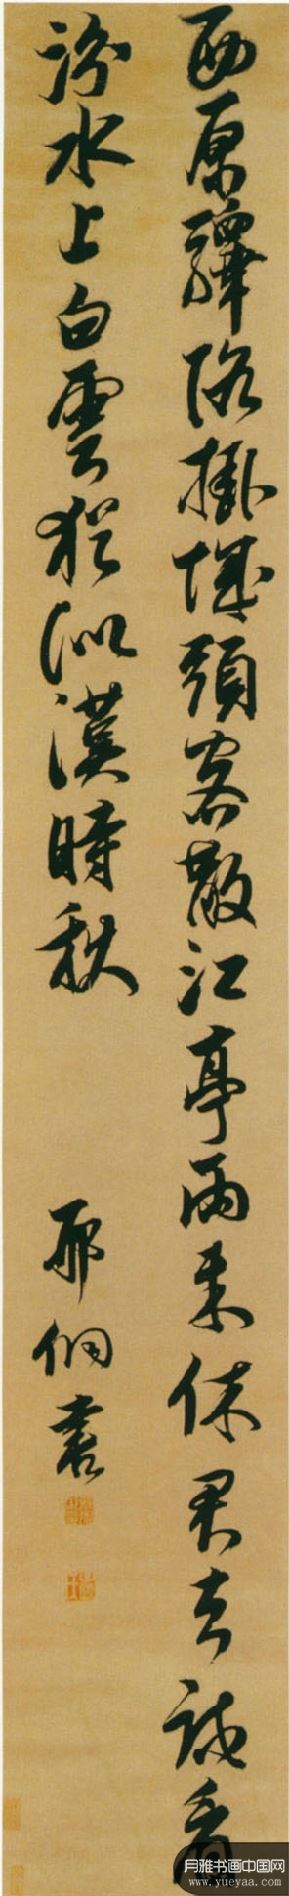 西原驛路掛城頭客散江亭雨未休君去試看
汾水上白雲猶似漢時秋
邢侗書
月雅书画中国网
www.yueyaa.com